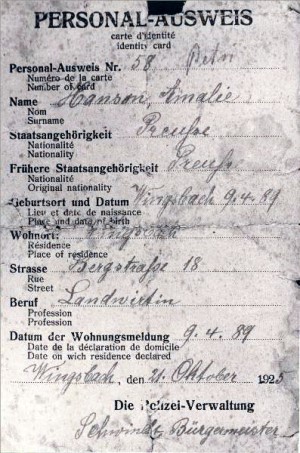 PERSONAL-AUSWEIS
carte d'identité
identity card
Personal-Ausweis Nr. 58
Numéro de la carte
Number of card
Name Hanson, Amalie
Nom
Surname
Staatsangehörigkeit Preusse
Nationalité
Nationality
Frühere Staatsangehörigkeit Preuß
Nationalité
Original nationality
Geburtsort und Datum Wingsbach 9.4.89
Lieu et date de naissance
Place and date of birth
Wohnort: Wingsbach
Résidence
Place of residence
Strasse Bergstraße 18
Rue
Street
Beruf Landwirtin
Profession
Profession
Datum der Wohnungsmeldung 9.4.89
Date de la déclaration de domicile
Date on wich residence declared
Wingsbach, den 21. Oktober 1925
Die Polizei-Verwaltung
Bürgermeister